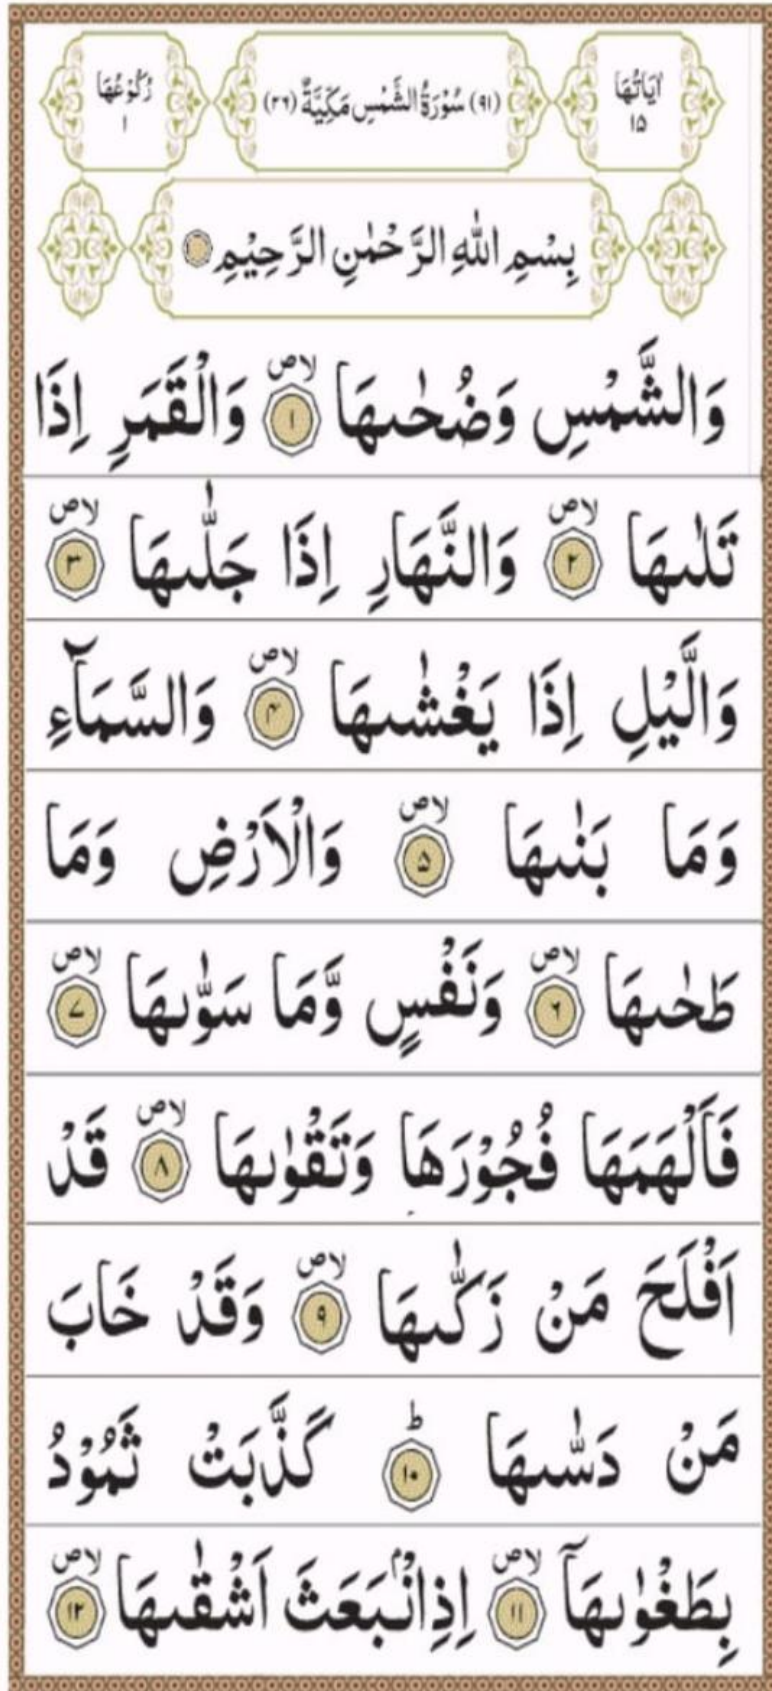 اٰيَاتُهَا ١٥
(٩١) سُوْرَةُ الشَّمْسِ مَكِّيَّةٌ (٢٦)
رُكُوْعُهَا ١
بِسْمِ اللّٰهِ الرَّحْمٰنِ الرَّحِيْمِ
وَالشَّمْسِ وَضُحٰىهَا ۪ۙ ﴿۱﴾ وَالْقَمَرِ اِذَا
تَلٰىهَا ۪ۙ ﴿۲﴾ وَالنَّهَارِ اِذَا جَلّٰىهَا ۪ۙ ﴿۳﴾
وَالَّيْلِ اِذَا يَغْشٰىهَا ۪ۙ ﴿۴﴾ وَالسَّمَآءِ
وَمَا بَنٰىهَا ۪ۙ ﴿۵﴾ وَالْاَرْضِ وَمَا
طَحٰىهَا ۪ۙ ﴿۶﴾ وَنَفْسٍ وَّمَا سَوّٰىهَا ۪ۙ ﴿۷﴾
فَاَلْهَمَهَا فُجُوْرَهَا وَتَقْوٰىهَا ۪ۙ ﴿۸﴾ قَدْ
اَفْلَحَ مَنْ زَكّٰىهَا ۪ۙ ﴿۹﴾ وَقَدْ خَابَ
مَنْ دَسّٰىهَا ؕ ﴿۱۰﴾ كَذَّبَتْ ثَمُوْدُ
بِطَغْوٰىهَاۤ ۪ۙ ﴿۱۱﴾ اِذِانْۢبَعَثَ اَشْقٰىهَا ۪ۙ ﴿۱۲﴾